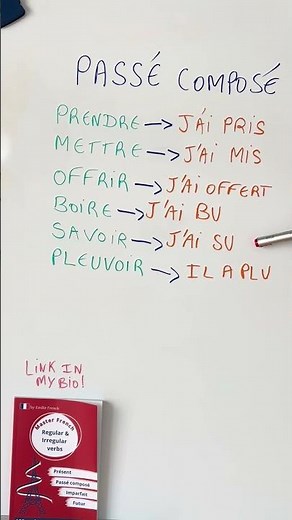 PASSÉ COMPOSÉ
PRENDRE → J'Ai PRiS
METTRE → J'Ai MiS
OFFRiR → J'Ai OFFERT
BOiRE → J'Ai BU
SAVOiR → J'Ai SU
PLEUVOiR → IL A PLU
LiNK IN
MY BiO!
Master French
Regular &
Irregular
verbs
Présent
Passé composé
Imparfait
Futur